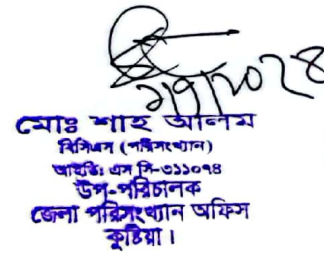 মোঃ শাহ আলম
বিসিএস (পরিসংখ্যান)
আইডি: এস সি-৩১১০৭৪
উপ-পরিচালক
জেলা পরিসংখ্যান অফিস
কুষ্টিয়া।